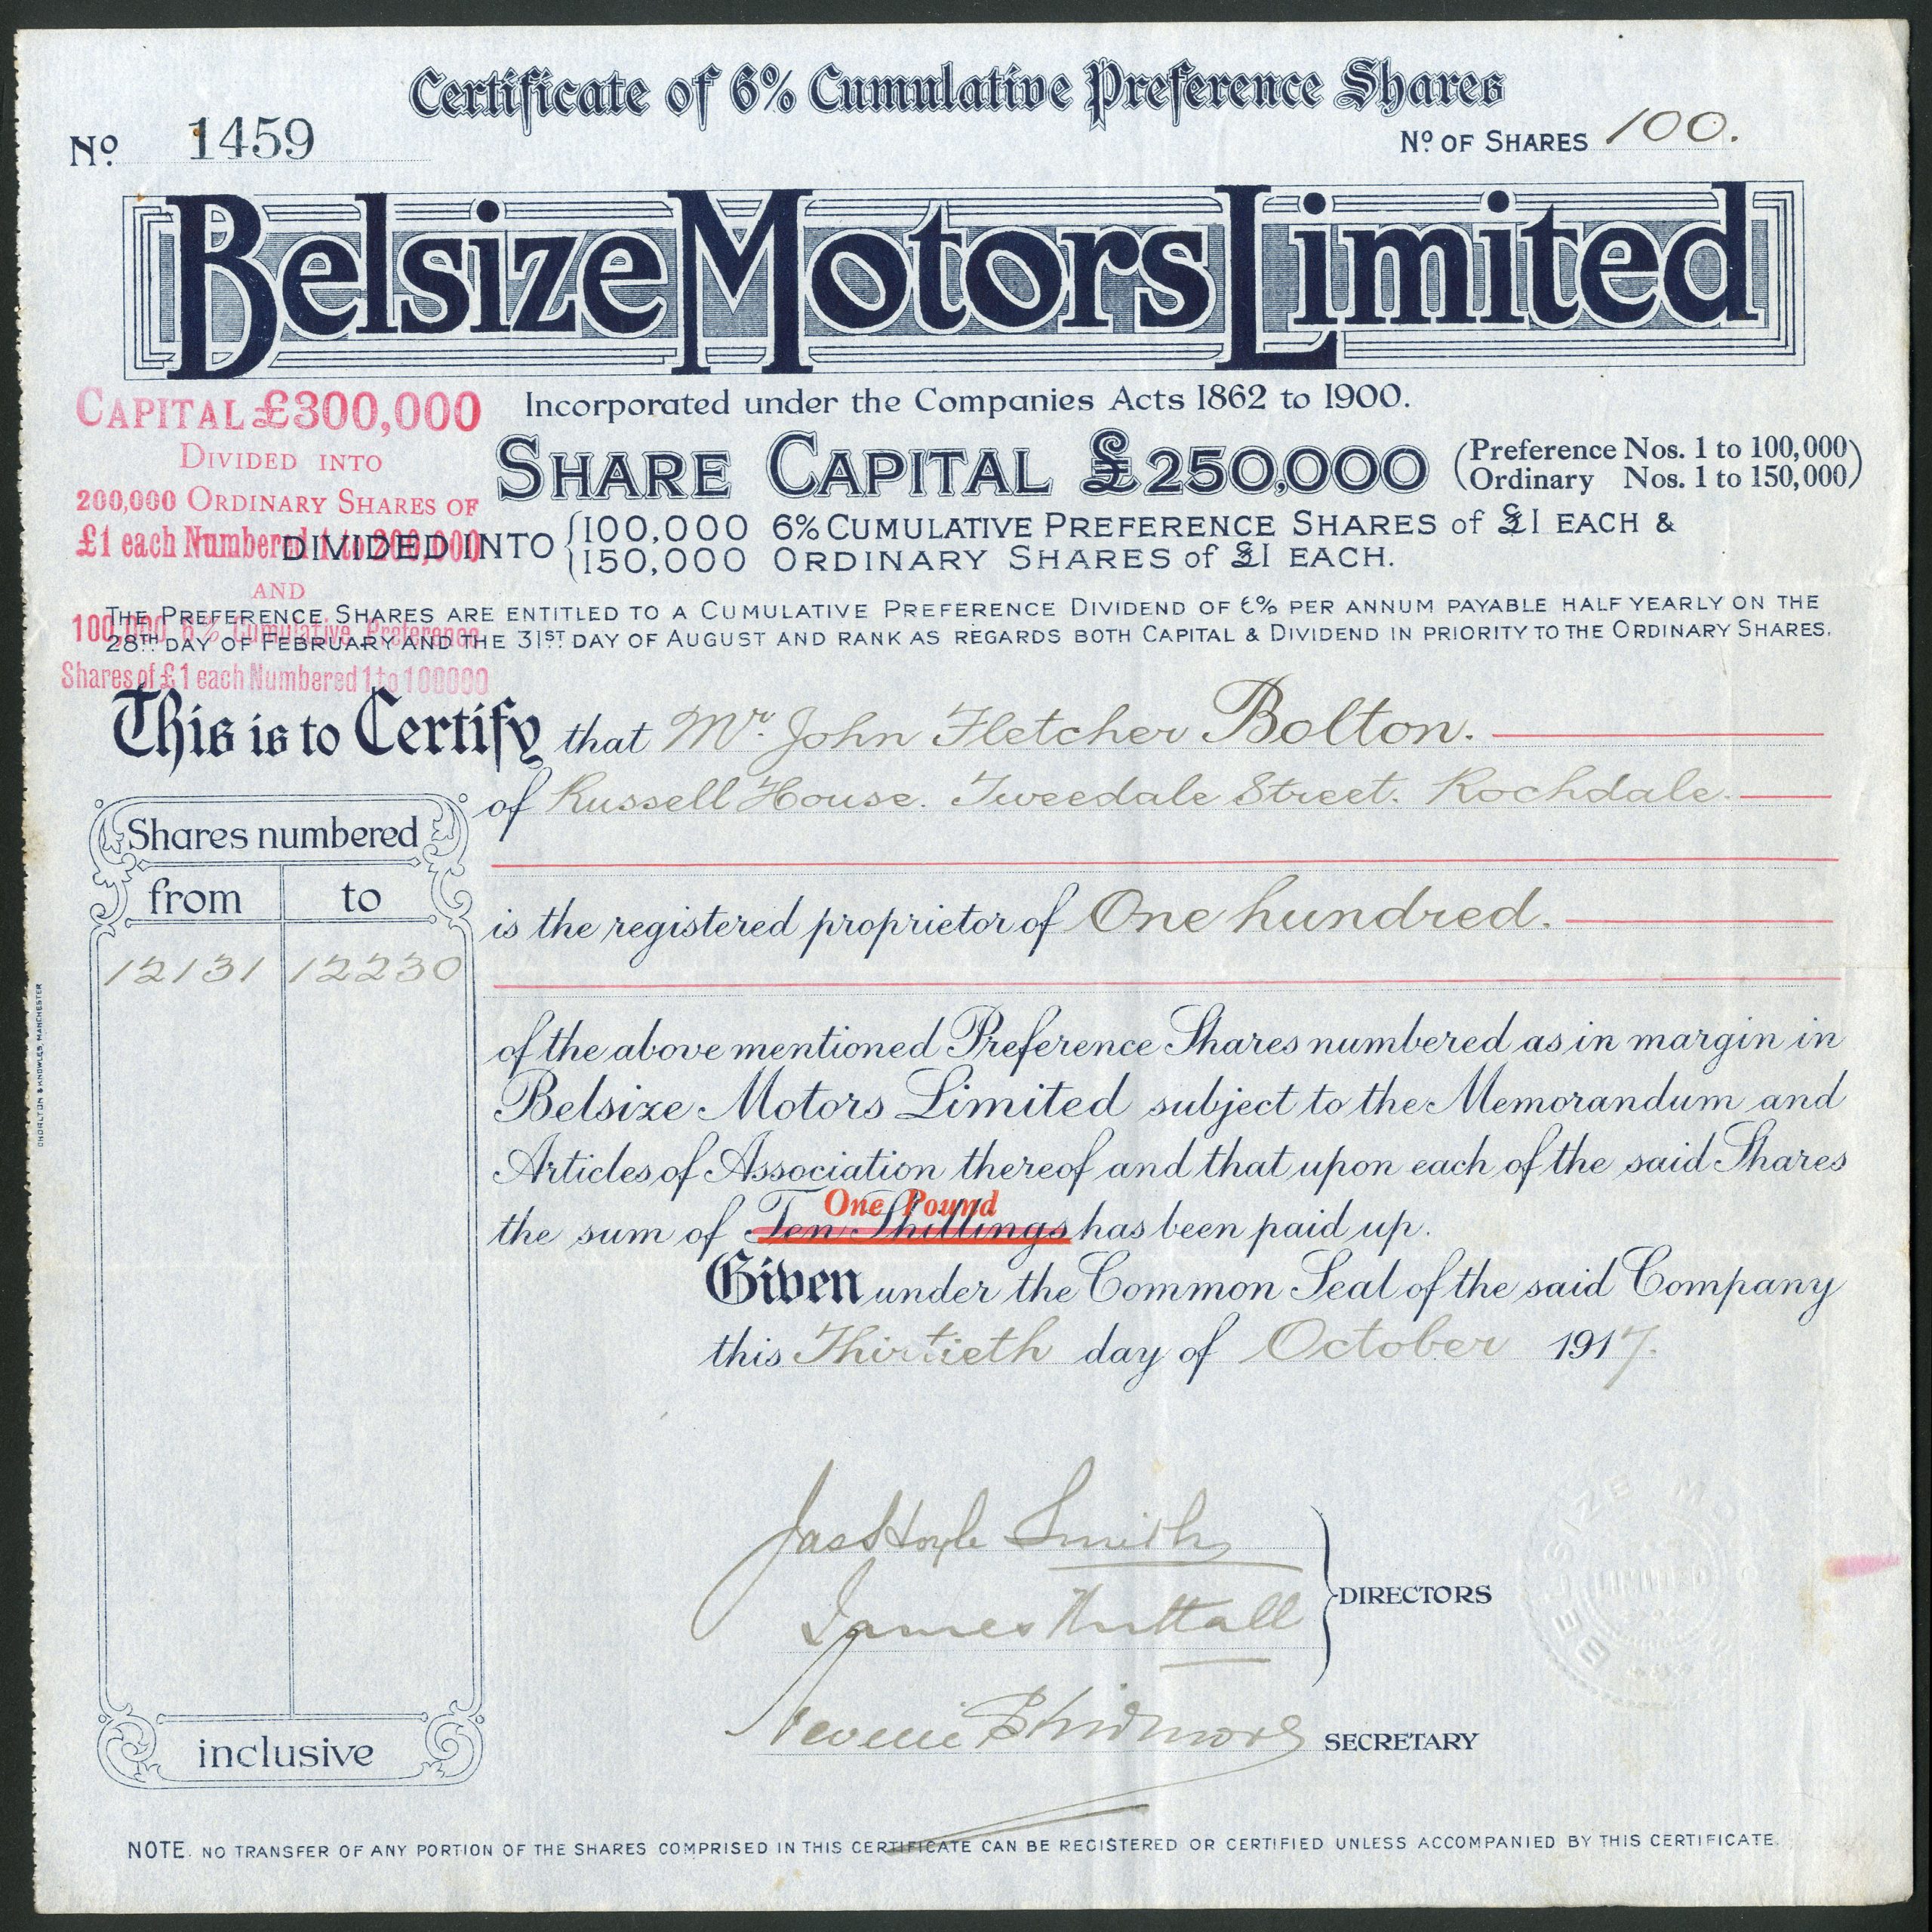 Certificate of 6% Cumulative Preference Shares
No. 1459
No. OF SHARES 100.
Belsize Motors Limited
Incorporated under the Companies Acts 1862 to 1900.
CAPITAL £300,000
DIVIDED INTO
200,000 ORDINARY SHARES OF
£1 each Numbered 1 to 200,000
AND
100,000 6% Cumulative Preference
Shares of £1 each Numbered 1 to 100000
SHARE CAPITAL £250,000 (Preference Nos. 1 to 100,000
Ordinary Nos. 1 to 150,000)
DIVIDED INTO {100,000 6% CUMULATIVE PREFERENCE SHARES of £1 EACH &
150,000 ORDINARY SHARES of £1 EACH.
THE PREFERENCE SHARES ARE ENTITLED TO A CUMULATIVE PREFERENCE DIVIDEND OF 6% PER ANNUM PAYABLE HALF YEARLY ON THE
28TH DAY OF FEBRUARY AND THE 31ST DAY OF AUGUST AND RANK AS REGARDS BOTH CAPITAL & DIVIDEND IN PRIORITY TO THE ORDINARY SHARES.
This is to Certify that Mr. John Fletcher Bolton.
of Russell House. Tweedale Street. Rochdale.
is the registered proprietor of One hundred.
Shares numbered
from to
12131 12230
inclusive
of the above mentioned Preference Shares numbered as in margin in
Belsize Motors Limited subject to the Memorandum and
Articles of Association thereof and that upon each of the said Shares
One Pound
the sum of Ten Shillings has been paid up.
Given under the Common Seal of the said Company
this Thirtieth day of October 1917.
Jas Hoyle Smith
James Nuttall
DIRECTORS
Skidmore
SECRETARY
BELSIZE MO
LIMITED
CHORLTON & KNOWLES, MANCHESTER
NOTE. NO TRANSFER OF ANY PORTION OF THE SHARES COMPRISED IN THIS CERTIFICATE CAN BE REGISTERED OR CERTIFIED UNLESS ACCOMPANIED BY THIS CERTIFICATE.